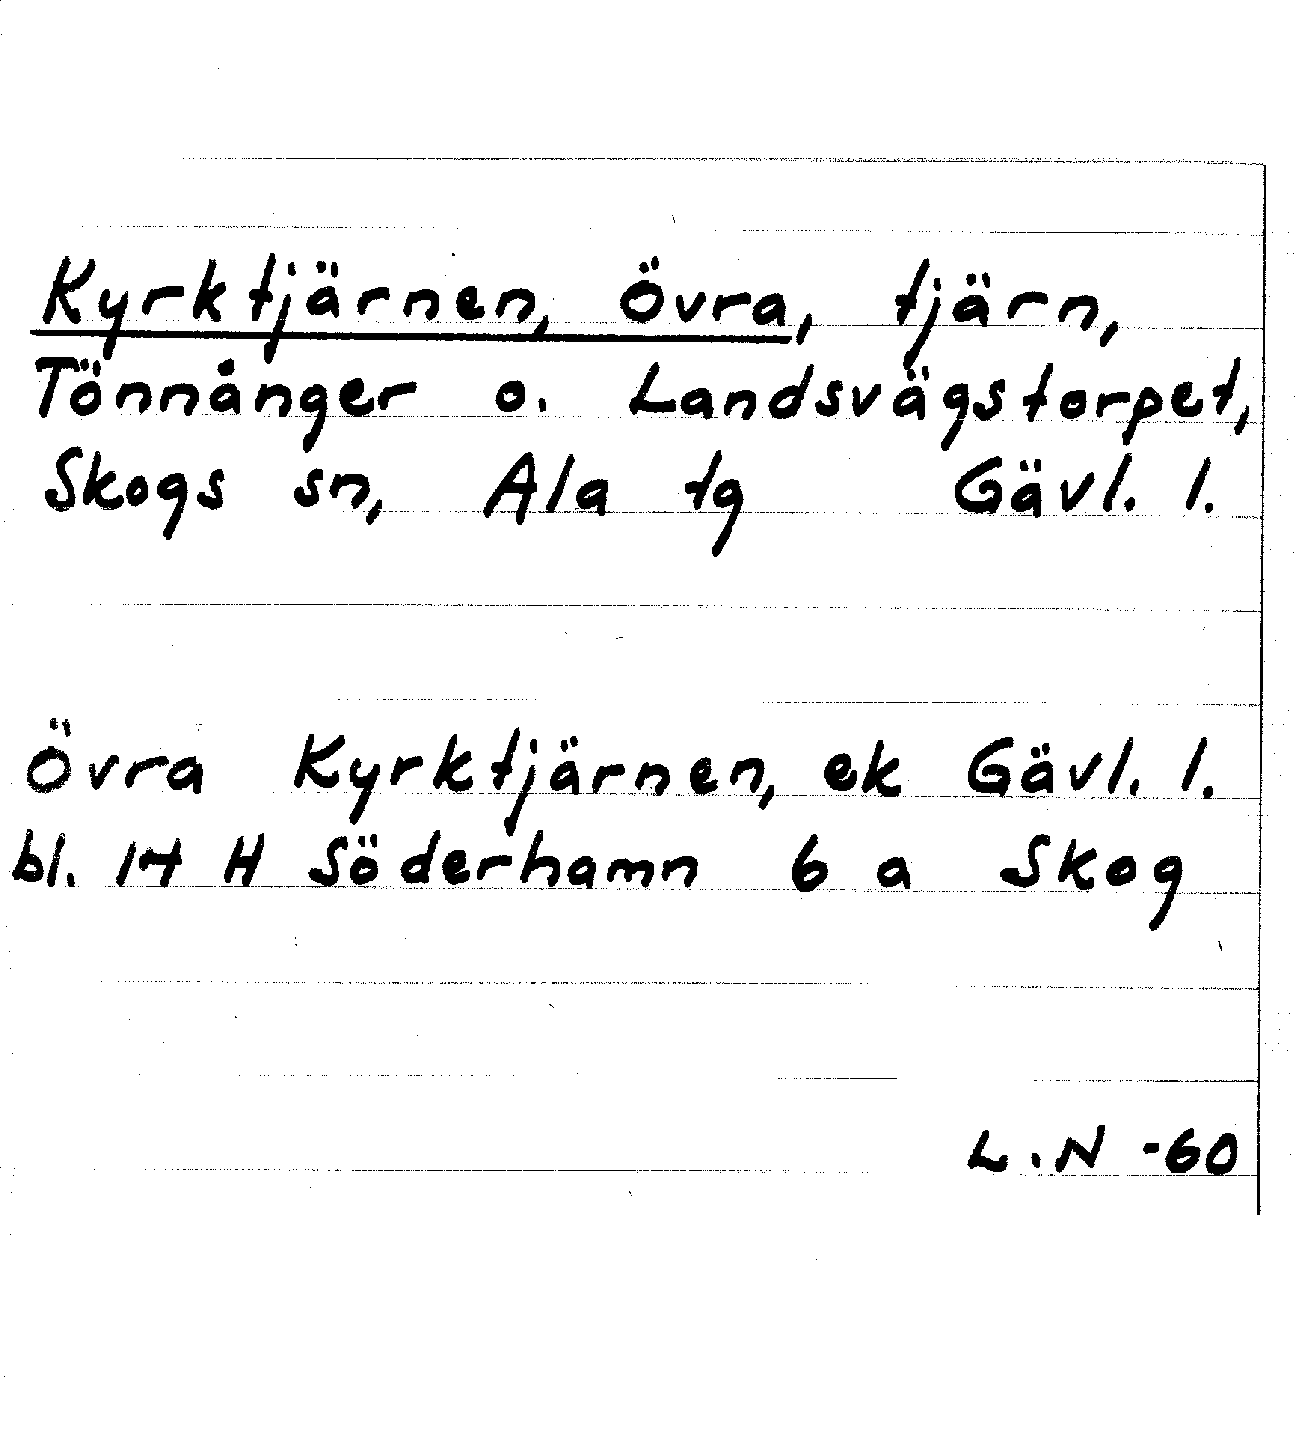 Kyrktjärnen, Övra, tjärn,
Tönnånger o. Landsvägstorpet,
Skogs sn, Ala tg Gävl. l.
Övra Kyrktjärnen, ek Gävl. l.
bl. 14 H Söderhamn 6 a Skog
L.N -60